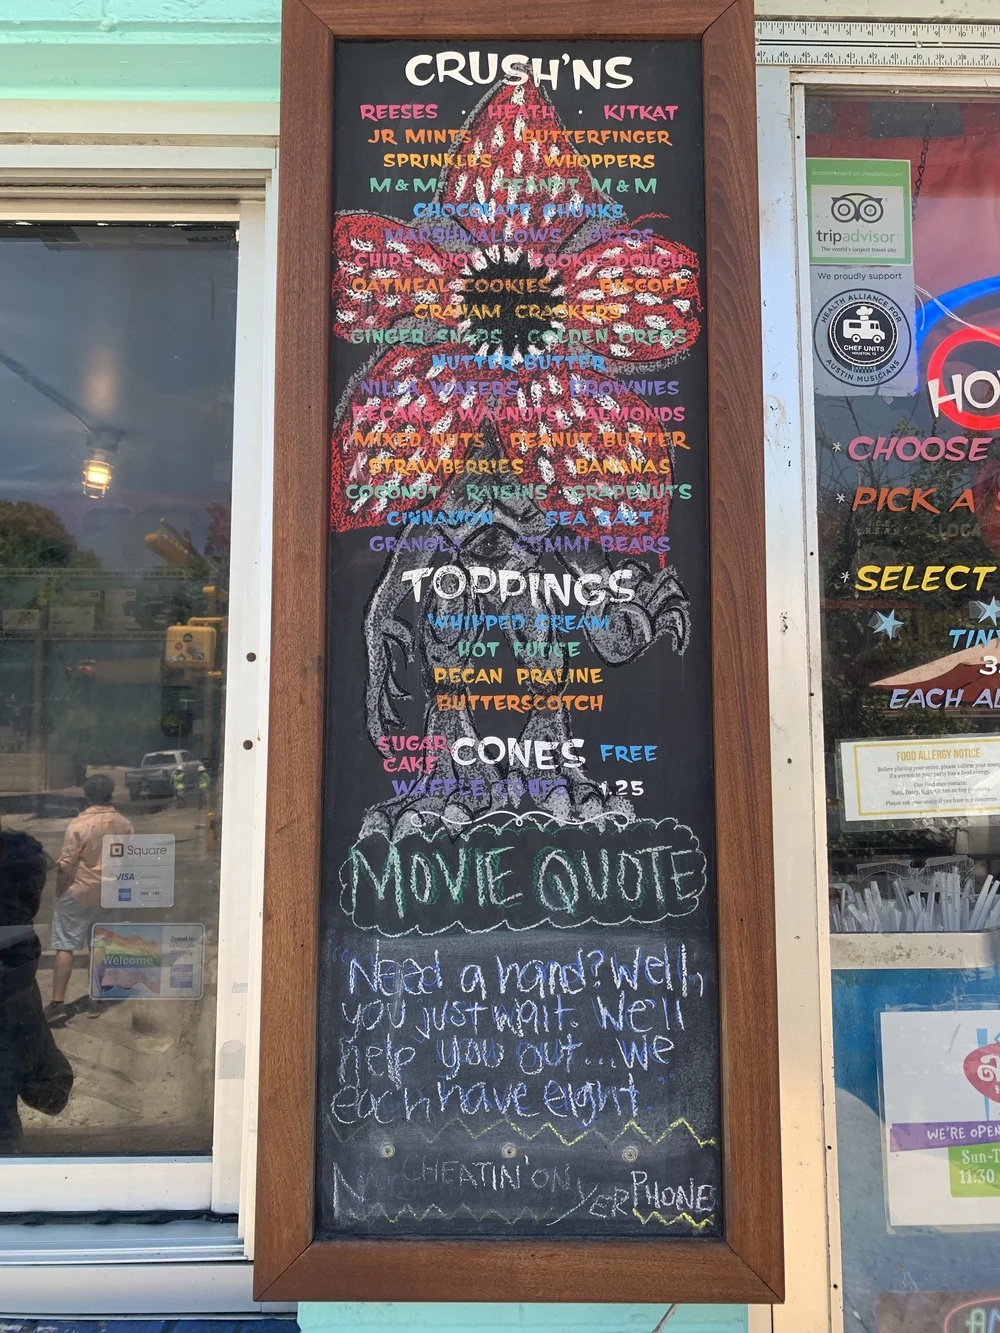 CRUSH'NS
REESES · HEATH · KITKAT
JR MINTS BUTTERFINGER
SPRINKLES WHOPPERS
M&Ms PEANUT M&M
CHOCOLATE CHUNKS
MARSHMALLOWS OREOS
CHIPS AHOY COOKIE DOUGH
OATMEAL COOKIES BISCOFF
GRAHAM CRACKERS
GINGER SNAPS GOLDEN OREOS
NUTTER BUTTER
NILLA WAFERS BROWNIES
PECANS WALNUTS ALMONDS
MIXED NUTS PEANUT BUTTER
STRAWBERRIES BANANAS
COCONUT RAISINS GRAPENUTS
CINNAMON SEA SALT
GRANOLA GUMMI BEARS
TOPPINGS
WHIPPED CREAM
HOT FUDGE
PECAN PRALINE
BUTTERSCOTCH
SUGAR
CAKE
CONES FREE
WAFFLE CONES 1.25
MOVIE QUOTE
"Need a hand? Well,
you just wait. We'll
help you out...we
each have eight."
CHEATIN' ON
YER PHONE
Square
VISA
DISCOVER
Welcome
Recommended on tripadvisor.com
tripadvisor
The world's largest travel site
We proudly support
HEALTH ALLIANCE FOR
CHEF UNITS
HOUSTON, TX
AUSTIN MUSICIANS
HO
*CHOOSE
*PICK A
LOCA
*SELECT
TIN
3.
EACH AD
FOOD ALLERGY NOTICE
Before placing your order, please inform your
if a person in your party has a food allergy.
Our food may contain:
WE'RE OPEN
Sun-T
11:30